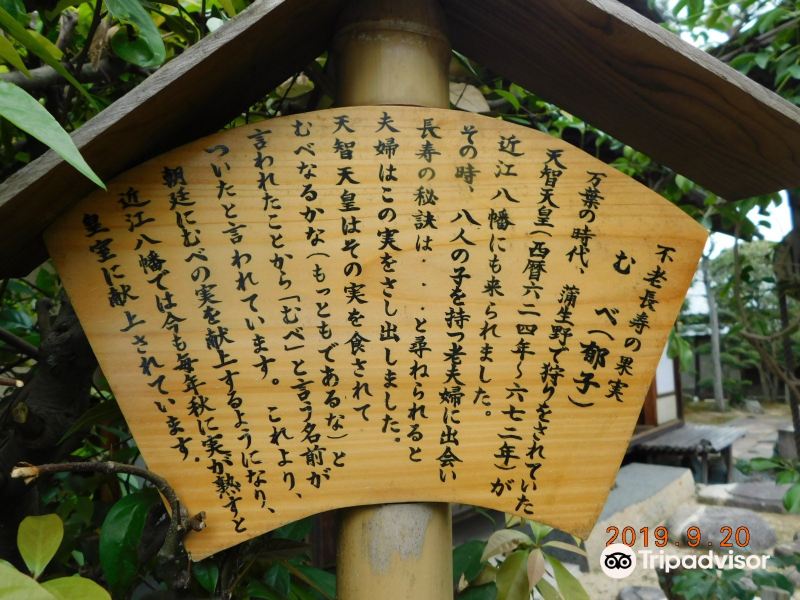 不老長寿の果実
むべ(郁子)
万葉の時代、蒲生野で狩りをされていた
天智天皇(西暦六二四年～六七二年)が
近江八幡にも来られました。
その時、八人の子を持つ老夫婦に出会い
長寿の秘訣は...と尋ねられると
夫婦はこの実をさし出しました。
天智天皇はその実を食されて
むべなるかな(もっともであるな)と
言われたことから「むべ」と言う名前が
ついたと言われています。これより、
朝廷にむべの実を献上するようになり、
近江八幡では今も毎年秋に実が熟すと
皇室に献上されています。
2019.9.20
Tripadvisor